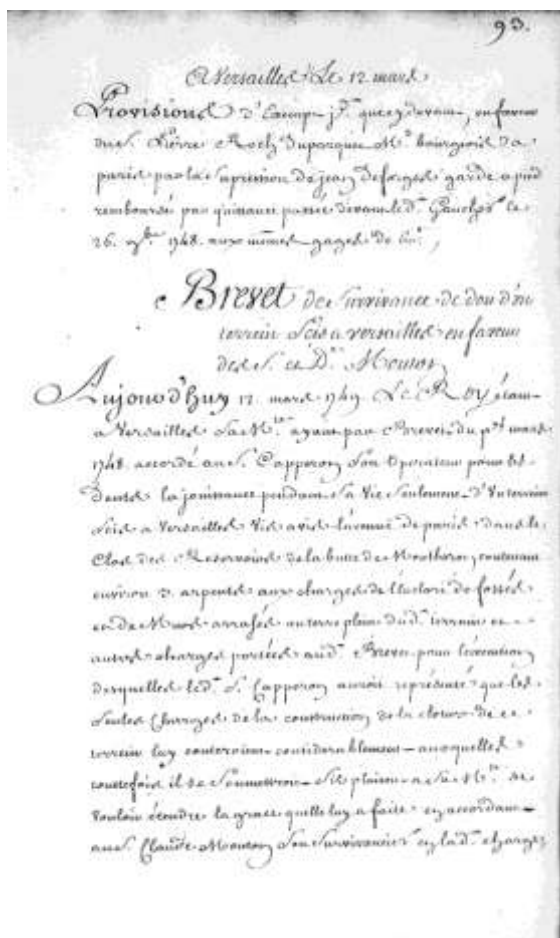 93.
A Versailles Le 12 mars
Provisions d'Exempt jd. que cy devant, en faveur
du S. Pierre Roch Duparque Md. bourgeois de
paris par la Supression de jean Deforges garde a pied
remboursé par quittance passée devant led.
26. 9bre 1748. aux mêmes gages de
Brevet de Survivance de don d'un
terrein Scis a Versailles en faveur
des S. et De. Mouton
Aujourd'huy 12. mars 1749. Le Roy étant
a Versailles Sa Mté. ayant par Brevet du mars
1748. accordé au S. Capperon Son Operateur pour les
Dents la jouissance pendant Sa Vie Seulement d'Un terrein
Scis a Versailles Vis avis l'avenue de paris dans le
Clos des Reservoirs de la butte de Montboron, contenant
environ 3. arpents aux charges de l'Enclore de fossés
et de Murs arrasés au terre plein dud. terrein et
autres charges portées aud. Brevet pour l'execution
desquelles led. S. Capperon auroit representé que les
Seules Charges de la construction de la cloture de ce
terrein luy couteroient considerablement auxquelles
touttefois il Se Soumettroit S'il plaisoit a Sa Mté. de
Vouloir étendre la grace qu'elle luy a faite en accordant
au S. Claude Mouton Son Survivancier en lad. charge